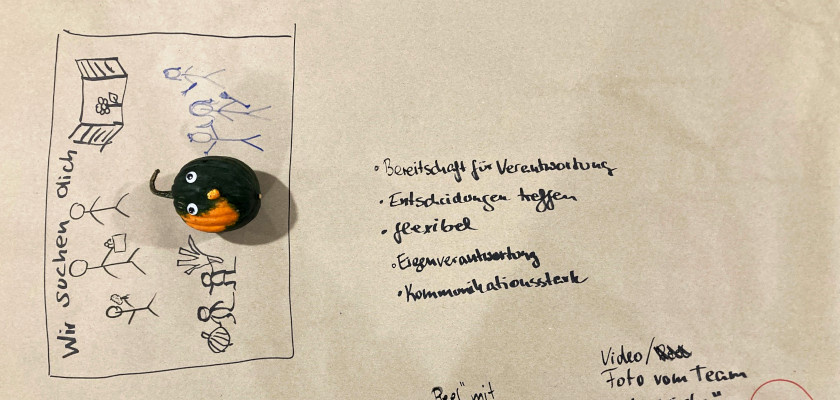 Wir suchen dich
• Bereitschaft für Verantwortung
• Entscheidungen treffen
• flexibel
• Eigenverantwortung
• Kommunikationsstark
Video/
Foto vom Team
mit